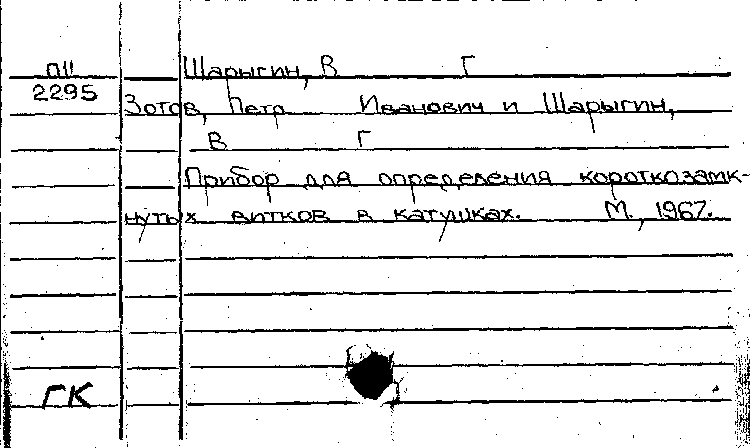 П11 Шарыгин, В Г
2295
Зотов, Петр Иванович и Шарыгин,
В Г
Прибор для определения короткозамк-
нутых витков в катушках. М., 1967.
ГК